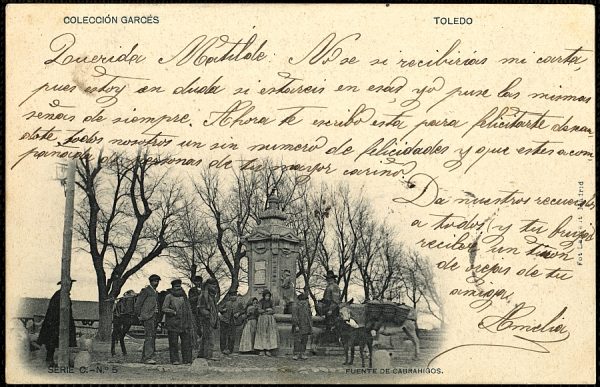 COLECCIÓN GARCÉS
TOLEDO
Querida Matilde. No se si recibirias mi carta,
pues estoy en duda si estareis en esa, yo puse las mismas
señas de siempre. Ahora te escribo esta para felicitarte desean-
dote todos nosotros un sin numero de felicidades y que estes acom-
pañada de personas de tu mayor cariño.
Da nuestros recuerdos
a todos y tu
recibe un tiron
de orejas de tu
amiga,
Amelia
SERIE C.-N.º 5
FUENTE DE CABRAHIGOS.